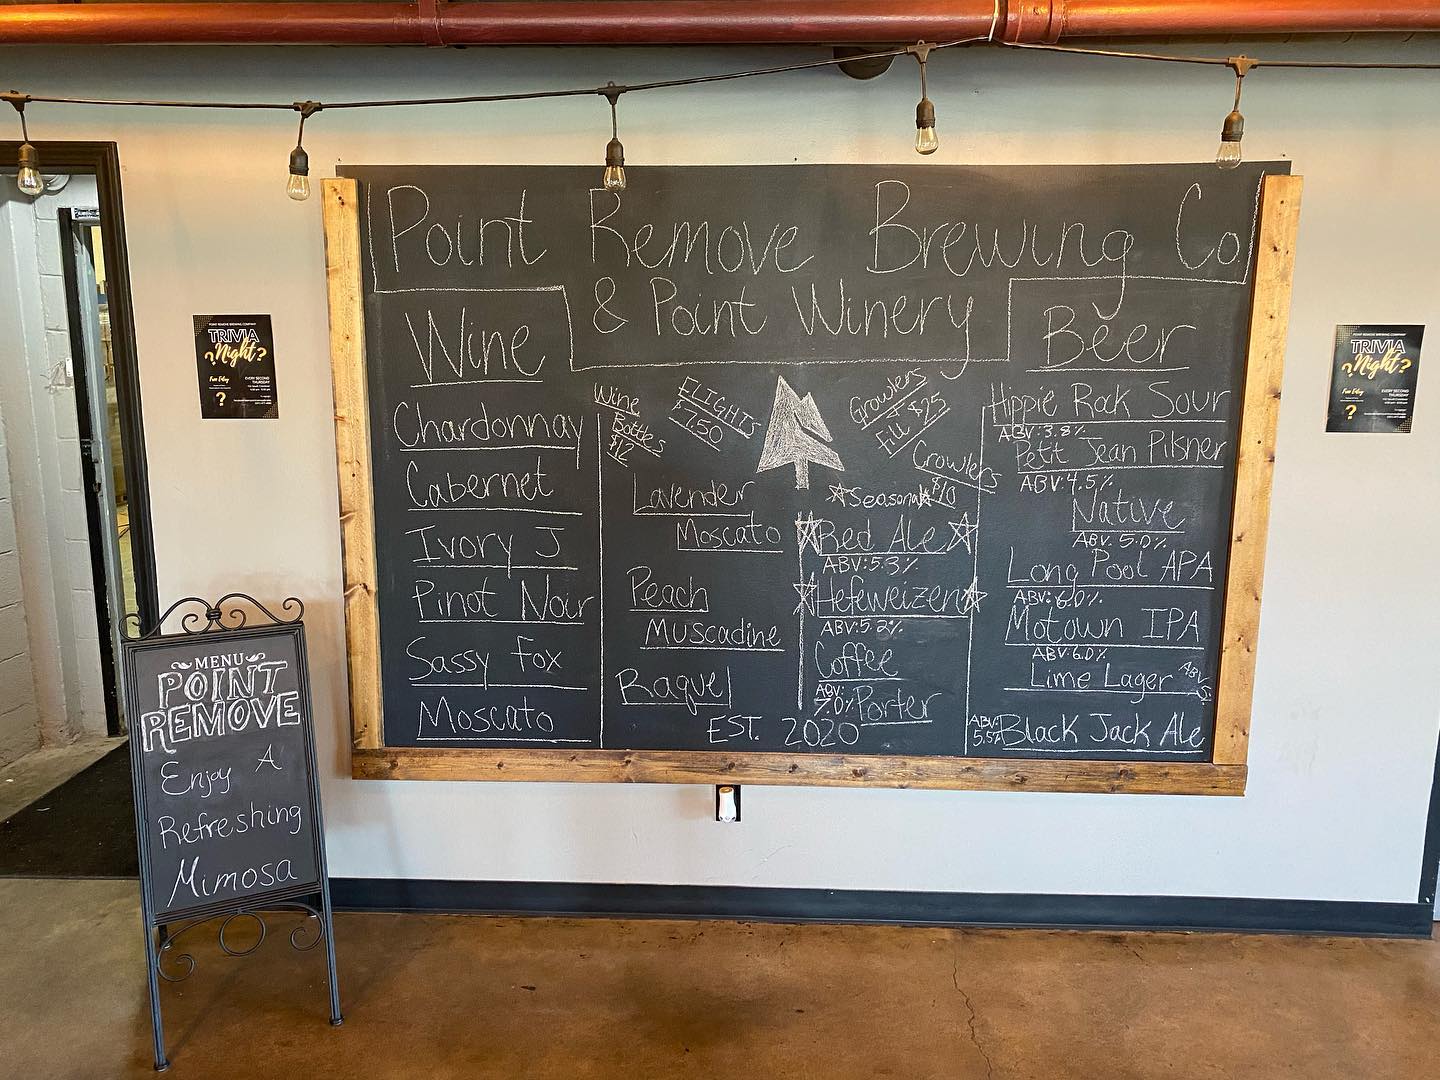 Point Remove Brewing Co
& Point Winery
Wine
Chardonnay
Cabernet
Ivory J
Pinot Noir
Sassy Fox
Moscato
Wine
Bottles
$12
FLIGHTS
Lavender
Moscato
Peach
Muscadine
Raquel
EST. 2020
Growlers
Fill $25
Crowlers
$10
Seasonal
Red Ale
ABV:5.3%
Hefeweizen
ABV:5.2%
Coffee
Porter
ABV:
7.0%
Beer
Hippie Rock Sour
ABV:3.8%
Petit Jean Pilsner
ABV:4.5%
Native
ABV: 5.0%
Long Pool APA
ABV:6.0%
Motown IPA
ABV:6.0%
Lime Lager
ABV
Black Jack Ale
ABV:
5.5%
POINT REMOVE BREWING COMPANY
TRIVIA
Night?
?
Free Entry
EVERY SECOND
THURSDAY
?
POINT REMOVE BREWING COMPANY
TRIVIA
Night?
?
Free Entry
EVERY SECOND
THURSDAY
?
MENU
POINT
REMOVE
Enjoy A
Refreshing
Mimosa